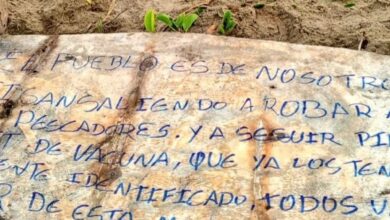 EL PUEBLO ES DE NOSOTRO
TAN SALIENDO A ROBAR A
PESCADORES. Y A SEGUIR PI
T DE VACUNA, QUE YA LOS TEN
ENTE IDENTIFICADO, TODOS U
R DE ESTO